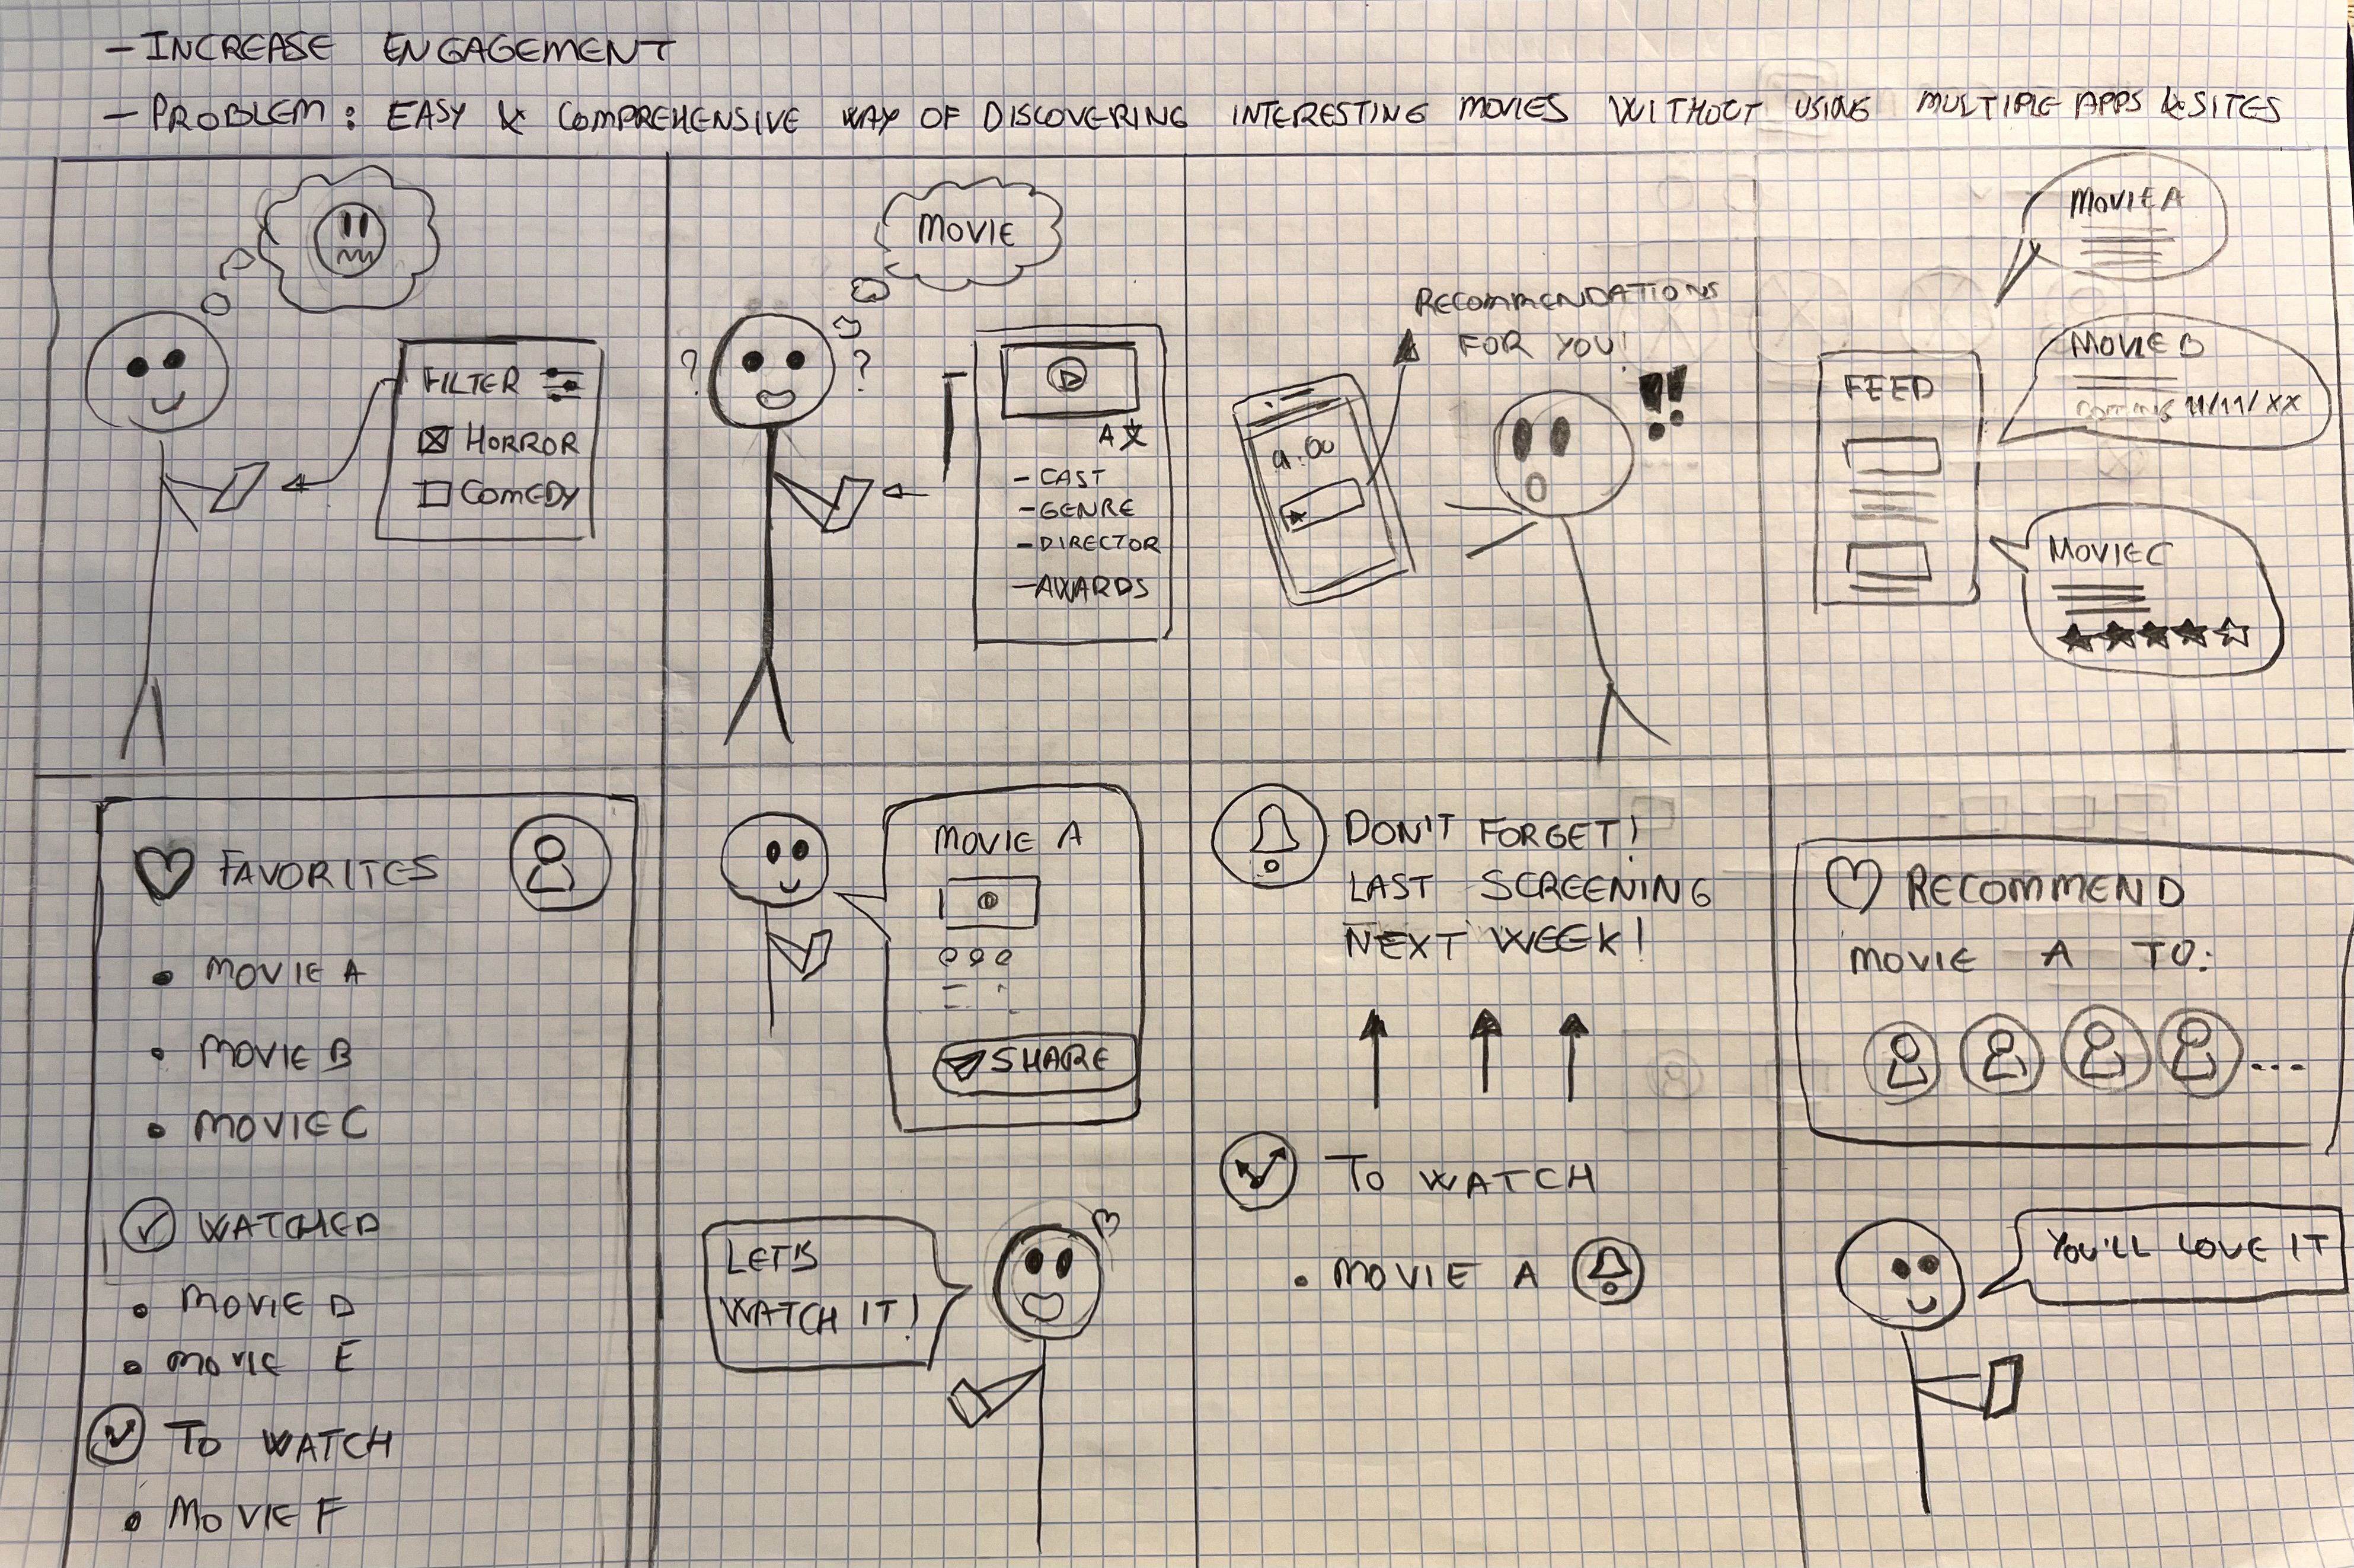 - INCREASE ENGAGEMENT
- PROBLEM: EASY & COMPREHENSIVE WAY OF DISCOVERING INTERESTING MOVIES WITHOUT USING MULTIPLE APPS & SITES
FILTER
HORROR
COMEDY
MOVIE
?
?
A文
- CAST
- GENRE
- DIRECTOR
- AWARDS
RECOMMENDATIONS
FOR YOU!
!!
FEED
MOVIE A
MOVIE B
COMING 11/11/XX
MOVIE C
FAVORITES
• MOVIE A
• MOVIE B
• MOVIE C
WATCHED
• MOVIE D
• MOVIE E
TO WATCH
• MOVIE F
MOVIE A
SHARE
LET'S
WATCH IT!
DON'T FORGET!
LAST SCREENING
NEXT WEEK!
TO WATCH
• MOVIE A
RECOMMEND
MOVIE A TO:
...
YOU'LL LOVE IT